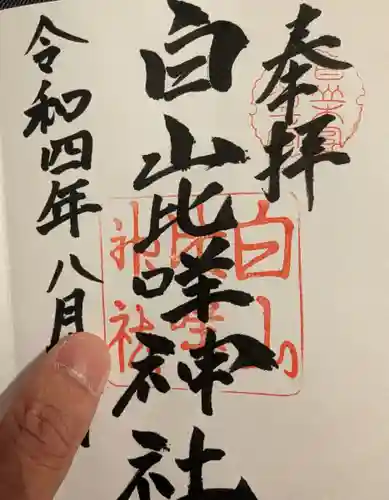 奉拝
白山比咩神社
令和四年八月
白山
比咩
神社